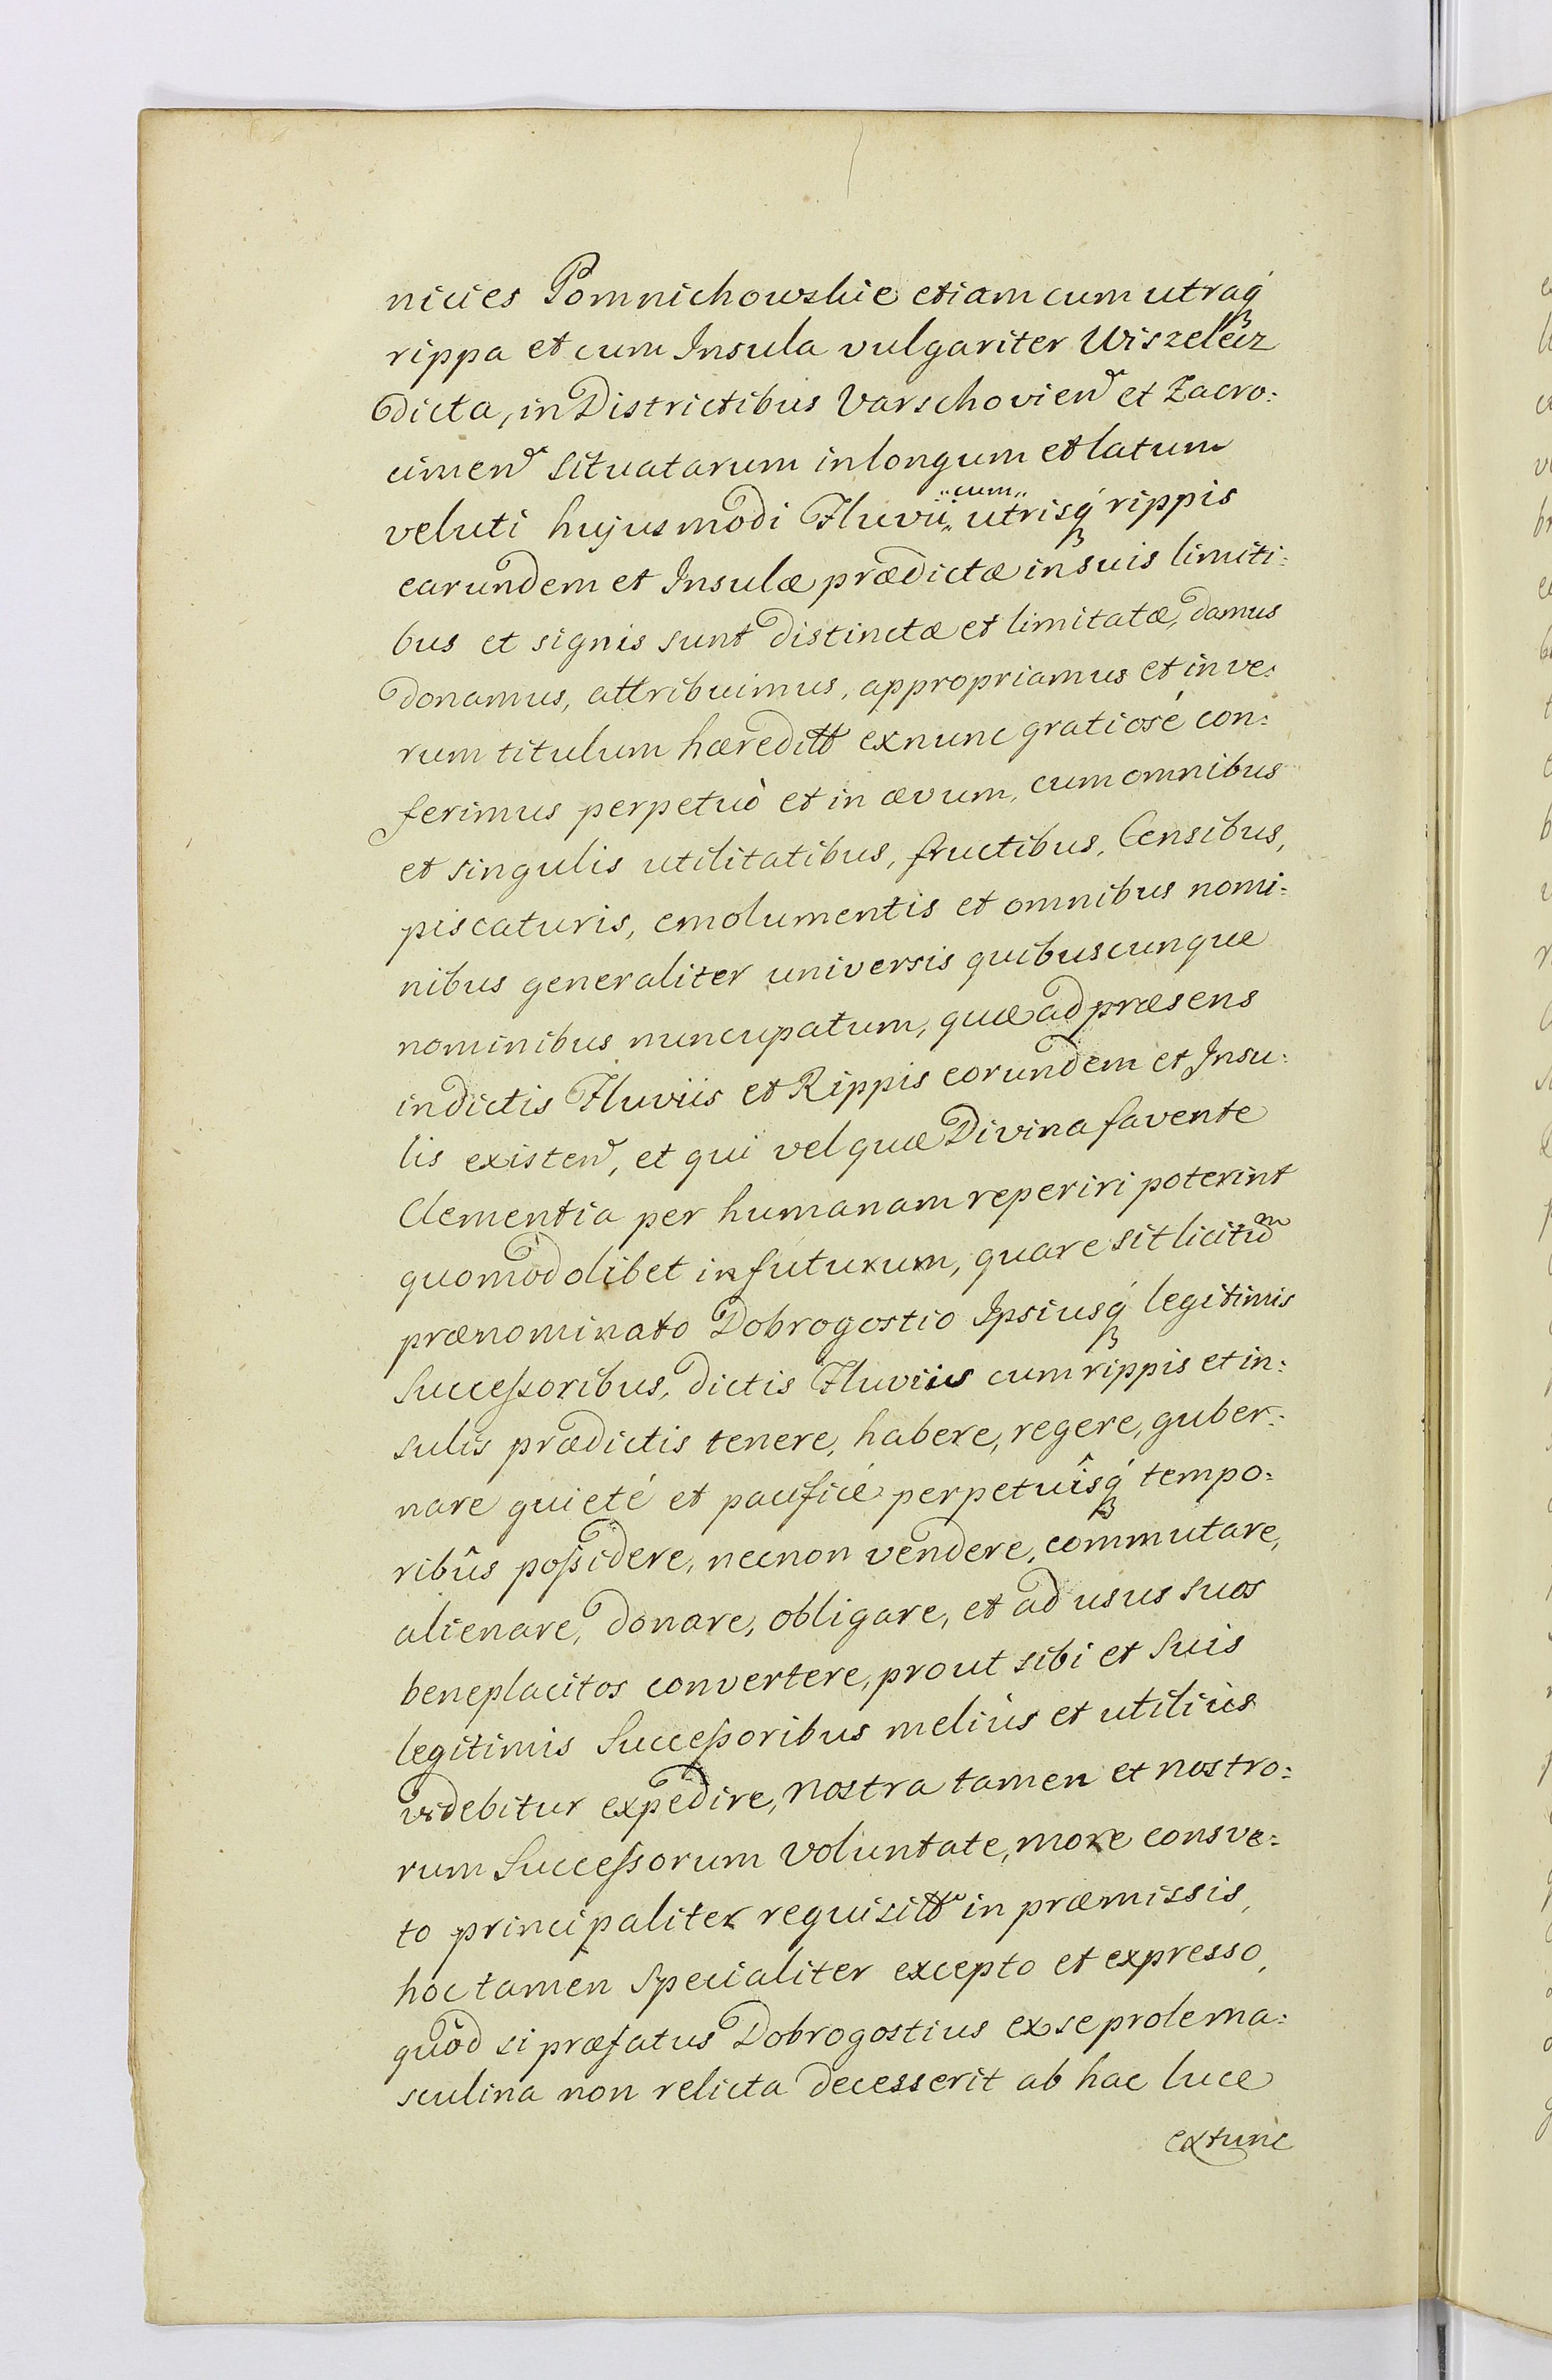 nicies Pomnichowskie etiam cum utraq́ꝫ
rippa et cum Insula vulgariter Wiszeleiz
dicta, in Districtibus Varschovien̄ et Zacro:
cimen̄ situatarum in longum et latum
veluti hujusmodi Fluvii „cum„ utrisq́ꝫ rippis
earundem et Insulæ prædictæ in suis limiti:
bus et signis sunt distinctæ et limitatæ, damus
donamus, attribuimus, appropriamus et in ve:
rum titulum hæreditt exnunc gratiosé con:
ferimus perpetuò et in ævum, cum omnibus
et singulis utilitatibus, fructibus, Censibus,
piscaturis, emolumentis et omnibus nomi:
nibus generaliter universis quibuscunque
nominibus nuncupatum, quæ ad præsens
in dictis Fluviis et Rippis eorundem et Insu:
lis existen̄, et qui vel quæ Divina favente
Clementia per humanam reperiri poterint
quomodolibet in futurum, quare sit licitūm
prænominato Dobrogostio Ipsiusq́ꝫ legitimis
Successoribus, dictis Fluviis cum rippis et in:
sulis prædictis tenere, habere, regere, guber:
nare quieté et pacificé perpetuîsq́ꝫ tempo:
ribûs possidere, necnon vendere, commutare,
alienare, donare, obligare, et ad usus suos
beneplacitos convertere, prout sibi et Suis
legitimis Successoribus meliùs et utiliùs
videbitur expedire, nostra tamen et nostro:
rum Successorum voluntate, more consve:
to principaliter requisitt in præmissis,
hoc tamen specialiter excepto et expresso,
quòd si præfatus Dobrogostius ex se prole ma:
sculina non relicta decesserit ab hac luce
extunc